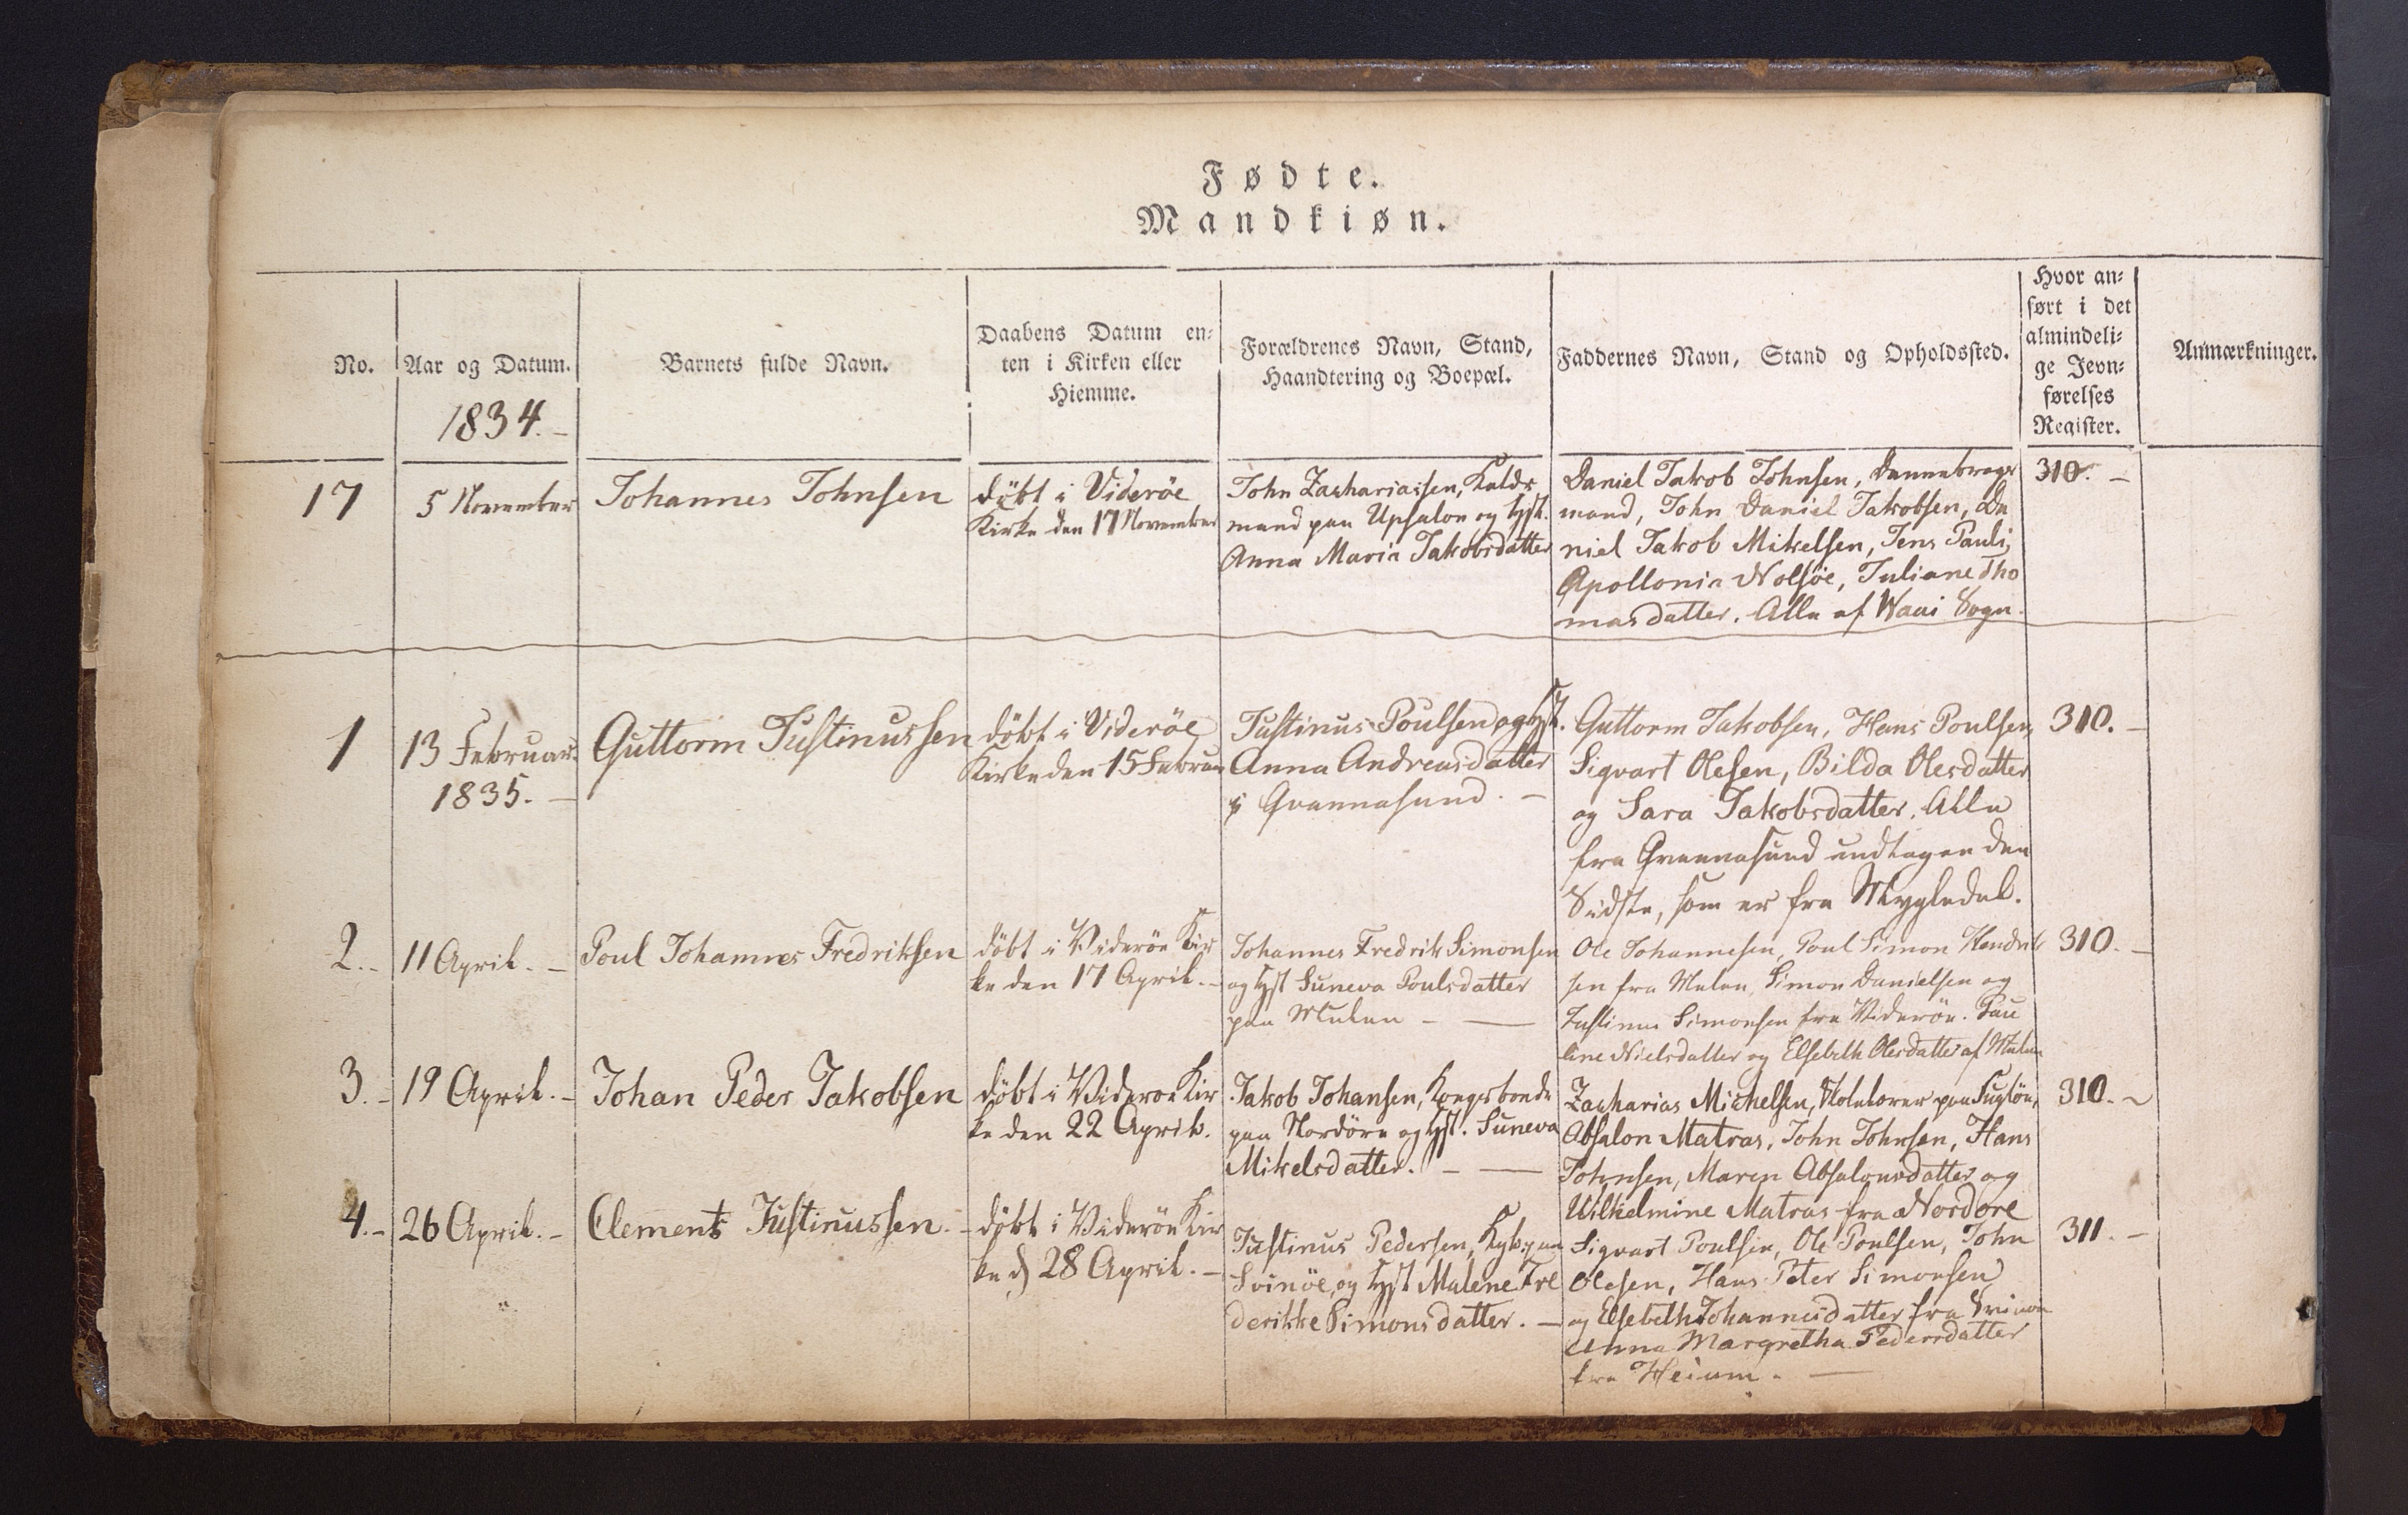 Fødte.
Mandkiøn.
No.
Aar og Datum.
1834. –
Barnets fulde Navn.
Daabens Datum en-
ten i Kirken eller
Hiemme.
Forældrenes Navn, Stand,
Haandtering og Boepæl.
Faddernes Navn, Stand og Opholdssted.
Hvor an-
ført i det
almindeli-
ge Jevn-
førelses
Register.
Anmærkninger.
17
5 November
Johannes Johnsen
døbt i Viderøe
Kirke den 17 November
John Zachariassen,
mand paa Upsalon og Hst.
Anna Maria Jakobsdatter
Daniel Jakob Johnsen, Dannebrogs
mand, John Daniel Jakobsen, Da
niel Jakob Mikelsen, Jens Pauli,
Apollonia Nolsöe, Juliane Tho
masdatter. Alle af Waai Sogn.
310. –
1
13 Februar
1835. –
Guttorm Justinussen
döbt i Viderøe
Kirke den 15 Februar
Justinus Poulsen og Hst.
Anna Andreasdatter
i Qvannasund. –
Guttorm Jakobsen, Hans Poulsen,
Sigvart Olesen, Bilda Olesdatter
og Sara Jakobsdatter. Alle
fra Qvannasund undtagen den
Sidste, som er fra Mygledal.
310. –
2. –
11 April. –
Poul Johannes Fredriksen
döbt i Viderøe Kir
ke den 17 April. –
Johannes Fredrik Simonsen
og Hst Suneva Poulsdatter
paa Mulen – —
Ole Johannesen, Poul Simon Hendrik
sen fra Mulen, Simon Danielsen og
Justinus Simonsen fra Viderøe. Pau
line Nielsdatter og Elsebeth Olesdatter af Mulen
310. –
3. –
19 April. –
Johan Peder Jakobsen
döbt i Viderøe Kir
ke den 22 April.
Jakob Johansen, Kongsbonde
paa Nordöre og Hst. Suneva
Mikelsdatter. – —
Zacharias Michelsen, Skolelærer paa Fuglöe,
Absalon Matras, John Johnsen, Hans
Johnsen, Maren Absalonsdatter og
Wilhelmine Matras fra Nordöre
310. ~
4. –
26 April. –
Clements Justinussen. –
döbt i Viderøe Kir
ke d) 28 April. –
Justinus Pedersen, paa
Svinöe, og Hst Malene Fre
derikke Simonsdatter. –
Sigvart Poulsen, Ole Poulsen, John
Olesen, Hans Peter Simonsen
og Elsebeth Johannesdatter fra Svinøe
Anna Margretha Pedersdatter
fra Heium. —
311. –